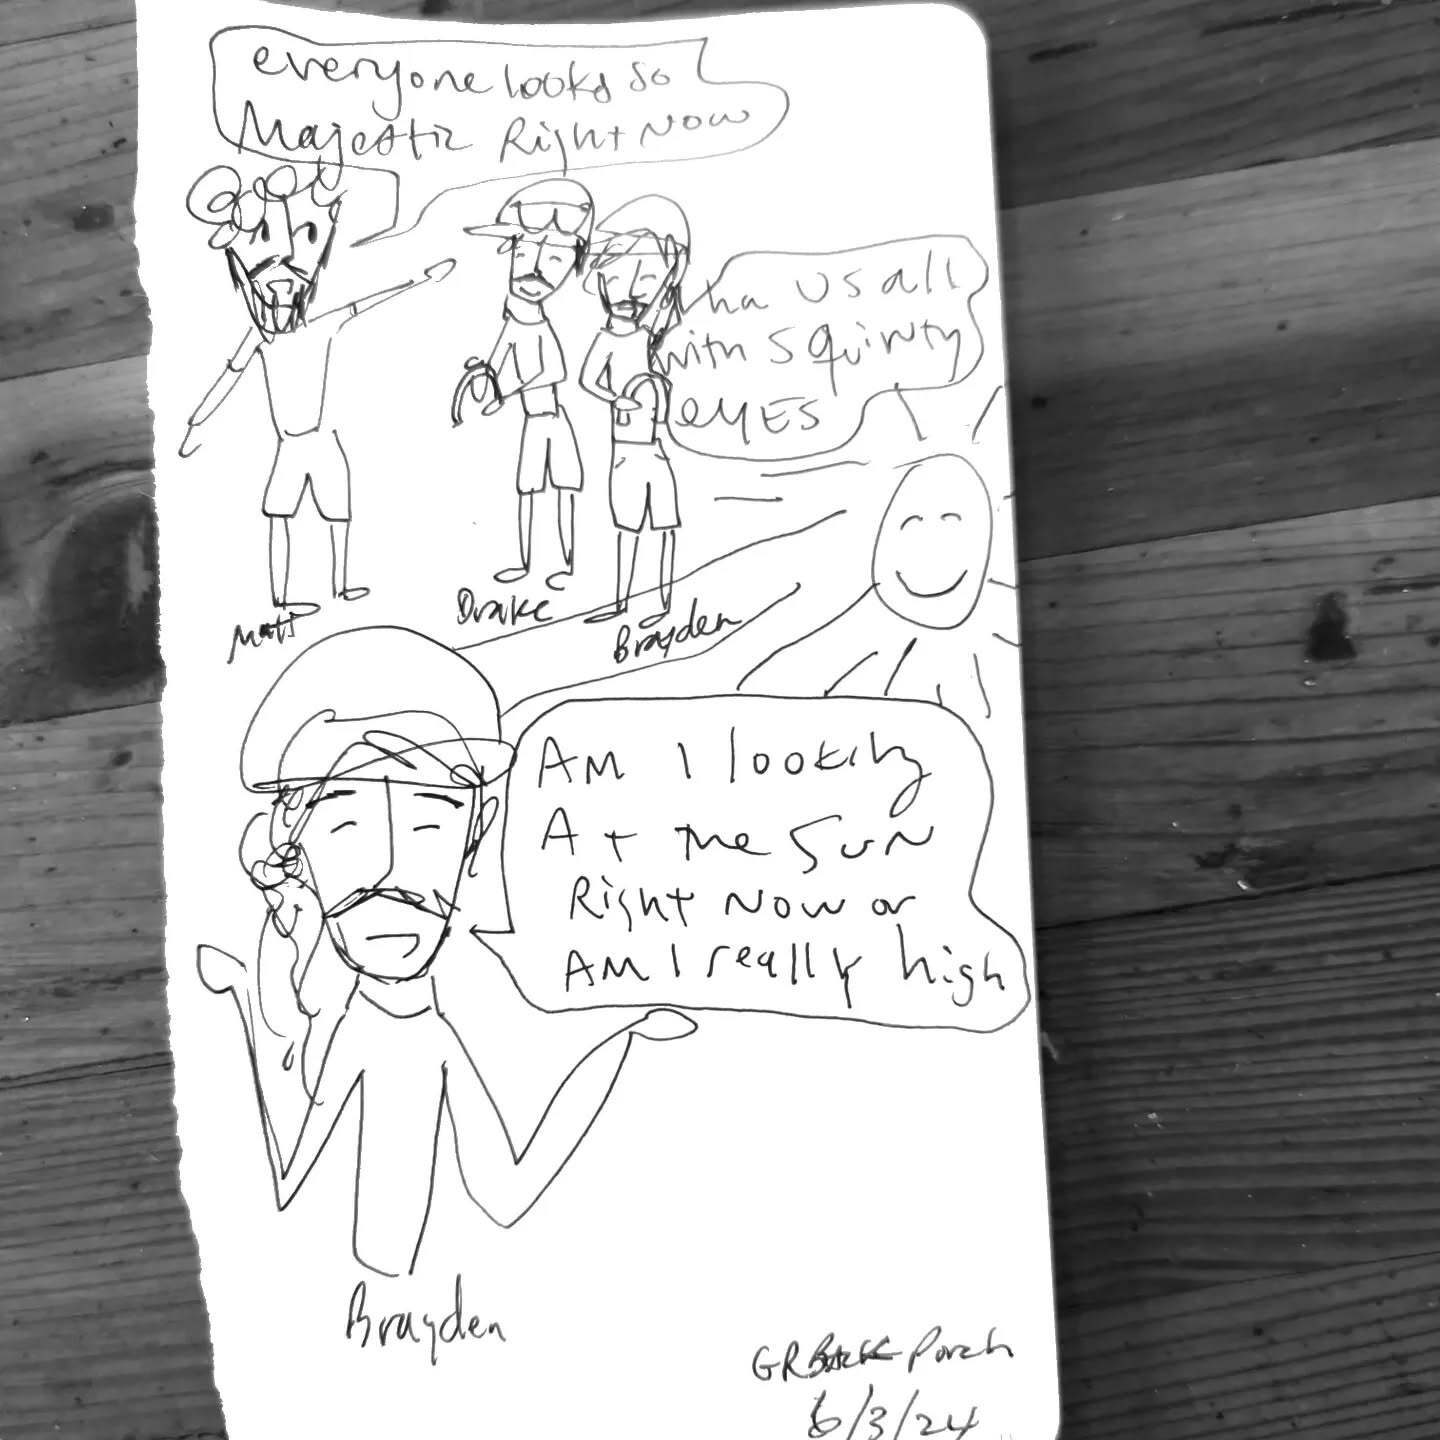 everyone looks so
Majestic Right Now
ha us all
with squinty
eyes
Matt
Drake
Brayden
AM I looking
At the Sun
Right Now or
AM I really high
Brayden
GR Back Porch
6/3/24